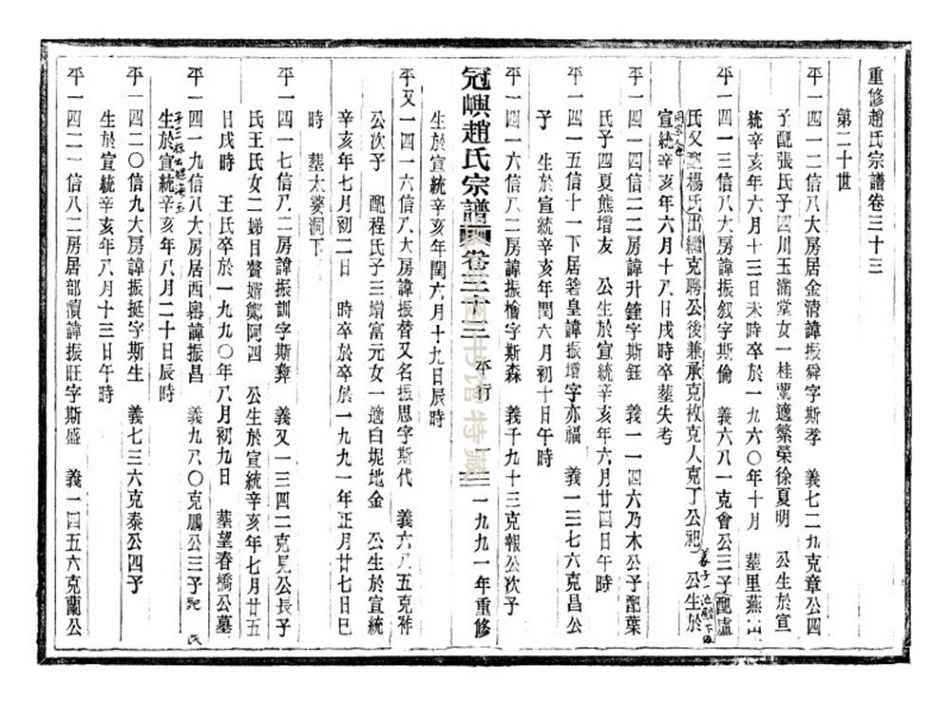 重修趙氏宗譜卷三十三
第二十世
平一四一二信八大房居金清諱振舜字斯孝　義七二九克章公四
子配張氏子四川玉滿堂女一桂蘭適繁榮徐夏明　公生於宣
統辛亥年六月十三日未時卒於一九六〇年十月　墓里燕山
平一四一三信八大房諱振叙字斯倫　義六八一克會公三子配盧
氏又配楊氏出繼克聘公後兼承克枚克人克丁公祀　公生於
宣統辛亥年六月十八日戌時卒墓失考
平一四一四信二二房諱升鍾字斯鈺　義一一四六乃木公子配葉
氏子四夏熊增友　公生於宣統辛亥年六月廿四日午時
平一四一五信十一下居箬皇諱振增字亦福　義一三七六克昌公
子　生於宣統辛亥年閏六月初十日午時
平一四一六信八二房諱振檜字斯森　義子九十三克報公次子
冠嶼趙氏宗譜　卷三十三　平行　一九九一年重修
生於宣統辛亥年閏六月十九日辰時
平又一四一六信八大房諱振替又名振思字斯代　義六八五克祚
公次子　配程氏子三增富元女一適白坭地金　公生於宣統
辛亥年七月初二日　時卒於一九九一年正月廿七日巳
時　墓太婆洞下
平一四一七信八二房諱振訓字斯彝　義又一三四二克見公長子
氏王氏女二娣日簪婿鄭阿四　公生於宣統辛亥年七月廿五
日戌時　王氏卒於一九九〇年八月初九日　墓望春橋公墓
平一四一九信八大房居西墺諱振昌　義九八〇克鵬公三子配　氏
生於宣統辛亥年八月二十日辰時
平一四二〇信九大房諱振挺字斯生　義七三三六克泰公四子
生於宣統辛亥年八月十三日午時
平一四二一信八二房居部瀆諱振旺字斯盛　義一四五六克蘭公